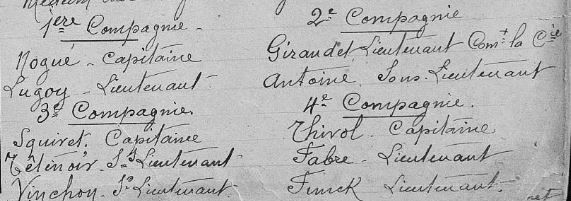 1ère Compagnie -
Nogué - Capitaine
Lugoy - Lieutenant
3e Compagnie.
Squiret. Capitaine
Tétinoir. S/s Lieutenant
Vinchon. S/s Lieutenant.
2e Compagnie
Giraudet Lieutenant Comt la Cie
Antoine. Sous-Lieutenant
4e Compagnie.
Thirol. Capitaine
Fabre - Lieutenant
Funck Lieutenant.